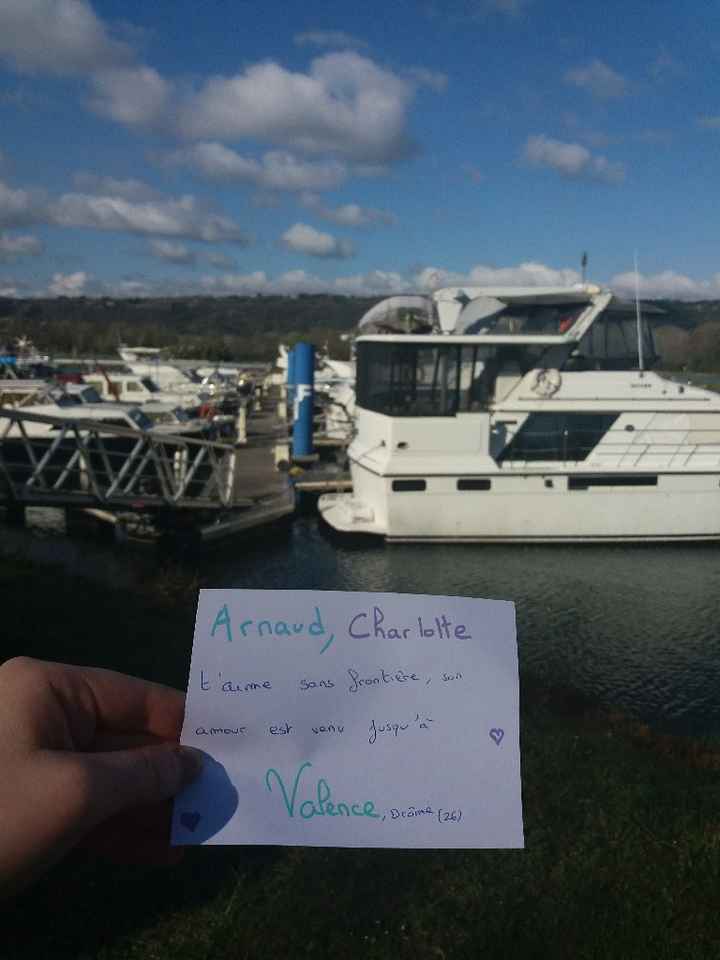 Arnaud, Charlotte
t'aime sans frontière, son
amour est venu jusqu'à
Valence, Drôme (26)